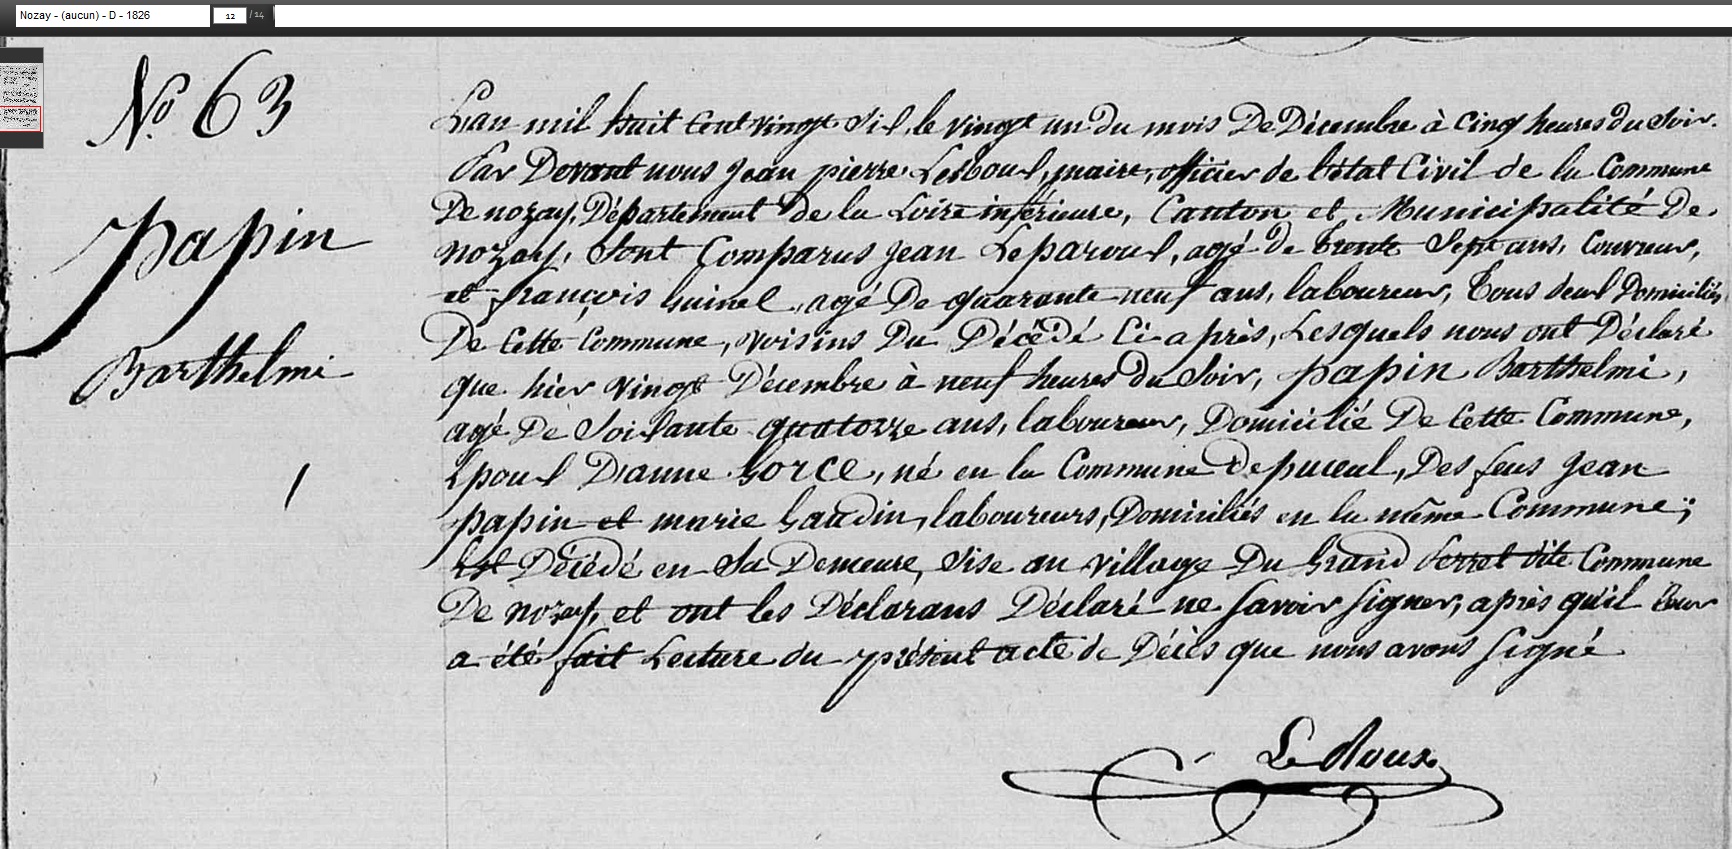 Nozay - (aucun) - D - 1826
12 / 14
N.o 63
papin
Barthelmi
L'an mil huit Cent vingt Six, le vingt un du mois De Décembre à Cinq heures du Soir.
Par Devant nous Jean pierre Leroux, maire, officier de l'état Civil de la Commune
De nozay, Département de la Loire inférieure, Canton et Municipalité De
nozay, Sont Comparus Jean Leparoux, agé de trente Sept ans, Couvreur,
et françois guinel, agé De quarante neuf ans, laboureur, Tous deux Domiciliés
De Cette Commune, voisins Du Décédé Ci-après, Lesquels nous ont Déclaré
que hier vingt Décembre à neuf heures du Soir, papin Barthelmi,
agé De Soixante quatorze ans, laboureur, Domicilié De Cette Commune,
Epoux D'anne gorce, né en la Commune De puceul, Des feus Jean
papin et marie gaudin, laboureurs, Domiciliés en la même Commune;
Est Décédé en Sa Demeure, Sise au village Du Grand dite Commune
De nozay, et ont les Déclarans Déclaré ne Savoir Signer, après qu'il leur
a été fait Lecture du présent acte de Décès que nous avons Signé
Le Roux